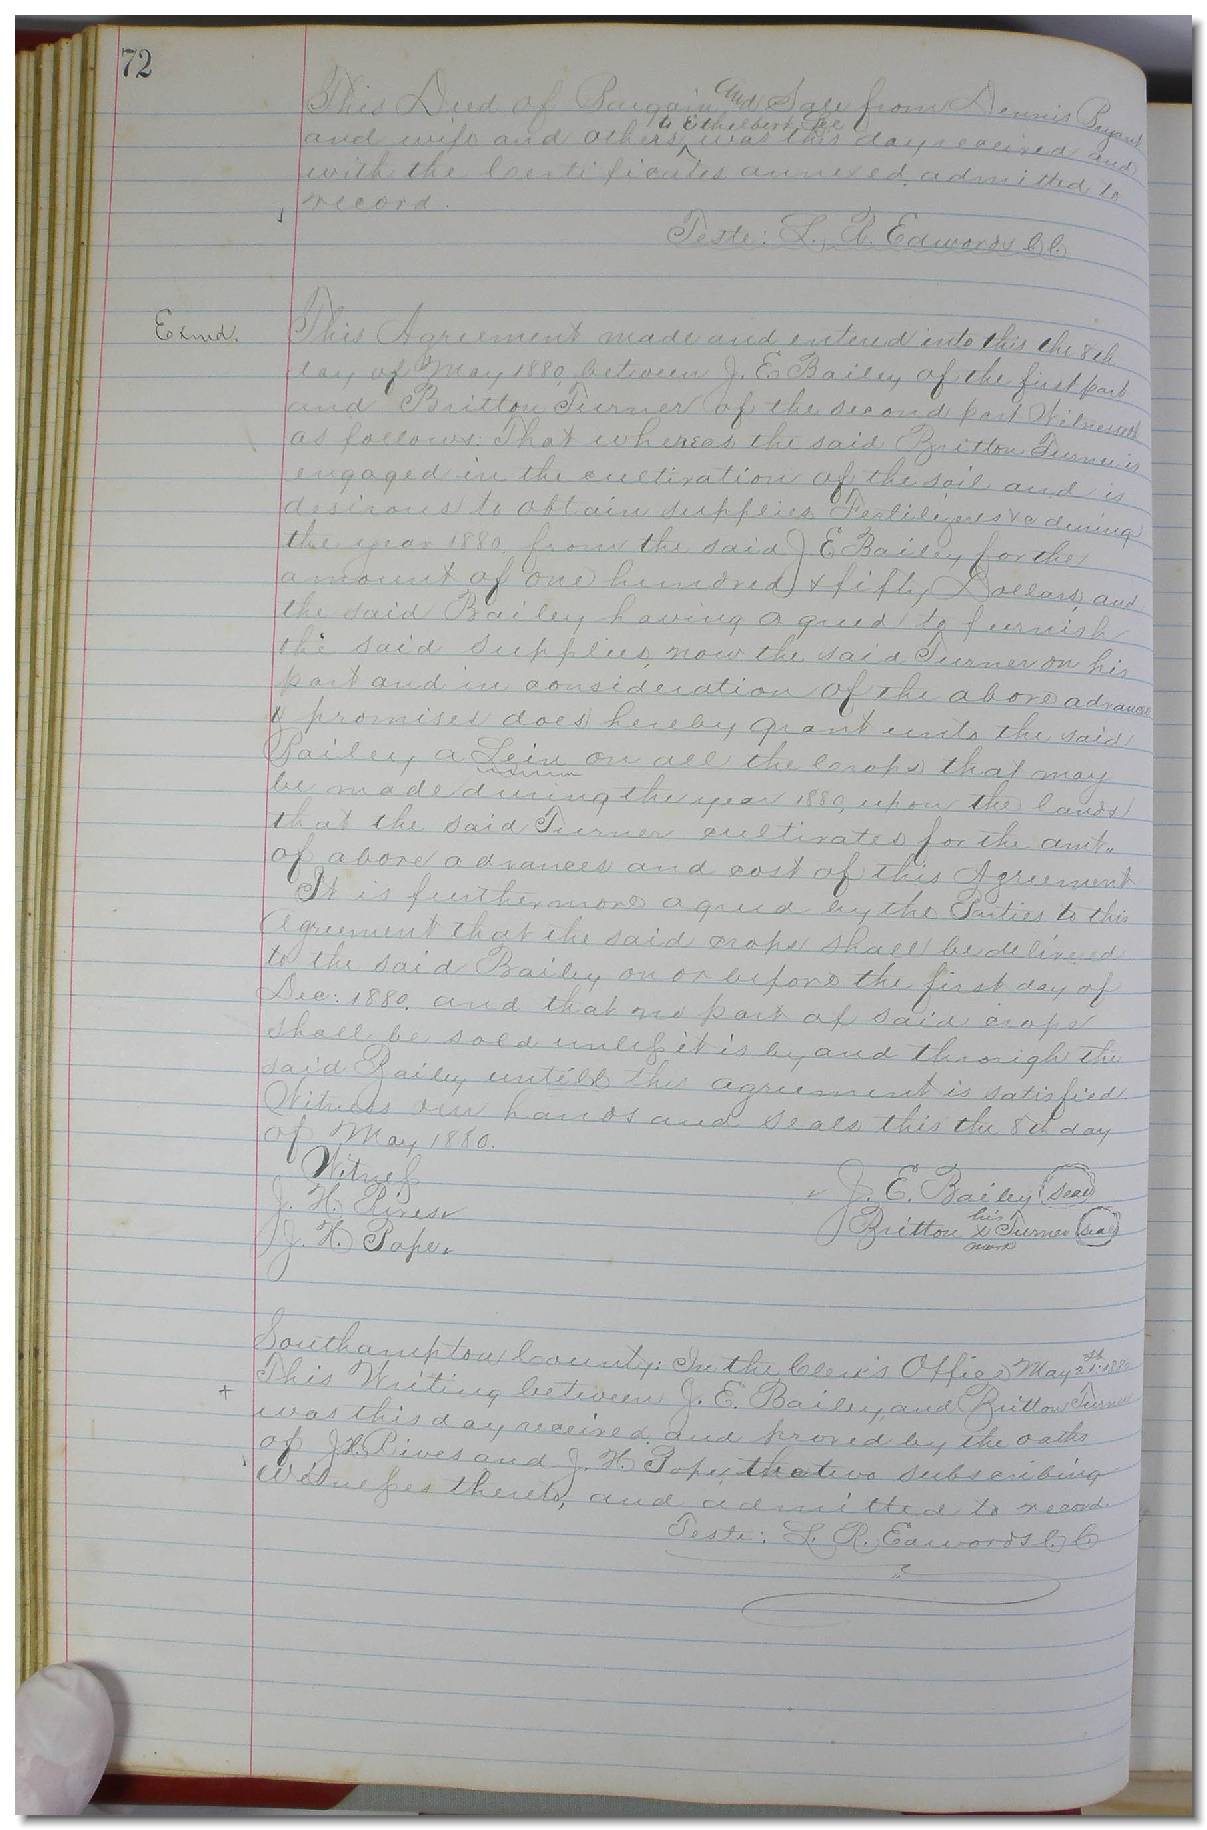 72
This Deed of Bargain and Sale from Dennis Bryant
and wife and others to Ethelbert Lee was this day received and
with the Certificates annexed admitted to
record.
Teste: L. R. Edwards C. C.
Exmd. This Agreement made and entered into this the 8th
day of May 1880, between J. E. Bailey of the first part
and Britton Turner of the second part Witnesseth
as follows: That whereas the said Britton Turner is
engaged in the cultivation of the soil and is
desirous to obtain supplies, Fertilizers &c during
the year 1880 from the said J. E. Bailey for the
amount of one hundred & fifty Dollars, and
the said Bailey having agreed to furnish
the said supplies, now the said Turner on his
part and in consideration of the above advance
& promises does hereby grant unto the said
Bailey a Lein on all the Crops that may
be made during the year 1880, upon the lands
that the said Turner cultivates for the amt.
of above advances and cost of this Agreement
It is furthermore agreed by the Parties to this
Agreement that the said crops shall be delivered
to the said Bailey on or before the first day of
Dec: 1880. and that no part of said crops
shall be sold unless it is by and through the
said Bailey untill this agreement is satisfied
Witness our hands and seals this the 8th day
of May 1880.
Witness
J. H. Rives J. E. Bailey (Seal)
J. H. Pope Britton his x mark Turner (Seal)
Southampton County: In the Clerk's Office May 21st 1880
This Writing between J. E. Bailey, and Britton Turner
was this day received and proved by the oaths
of J. H. Rives and J. H. Pope, the two subscribing
witnesses thereto, and admitted to record.
Teste: L. R. Edwards C. C.